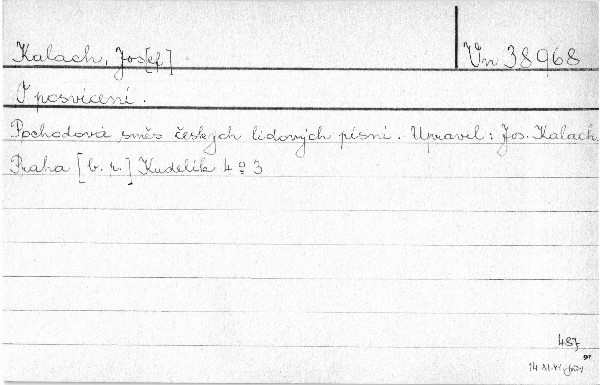 Kalach, Jos[ef] Vn 38968
O posvícení.
Pochodová směs českých lidových písní. Upravil: Jos. Kalach.
Praha [b. r.] Kudelík 4º 3
487
14 XI